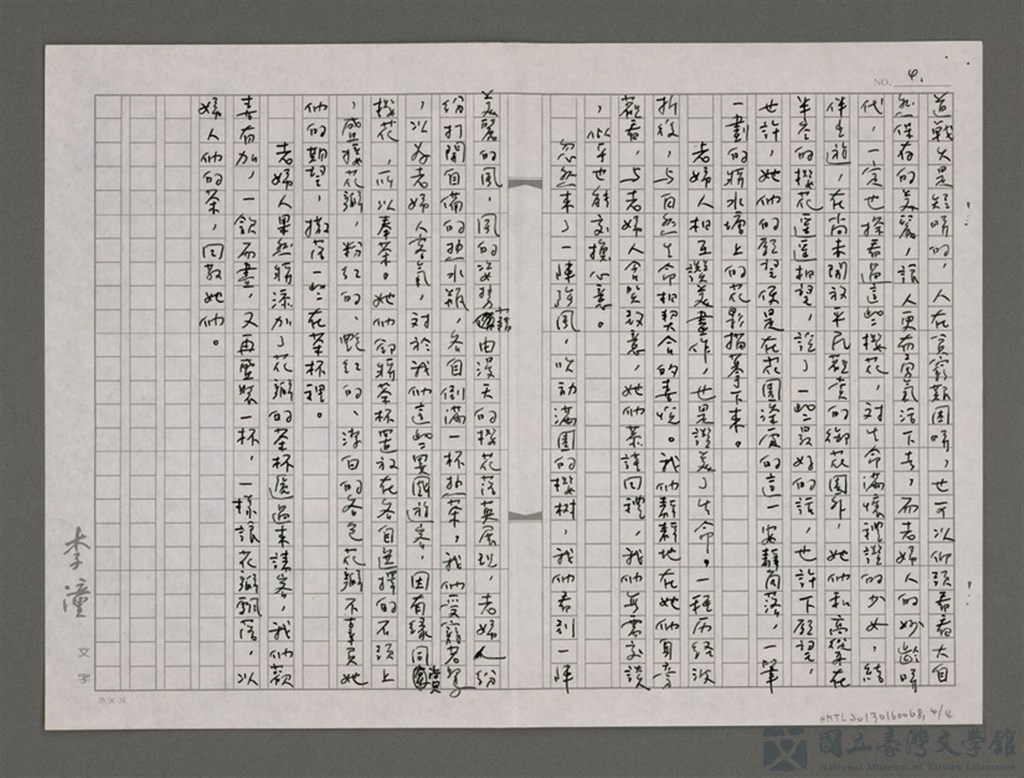 NO. 4.
道戰火是短暫的，人在貧窮艱困時，也可以仰頭看看大自
然保存的美麗，讓人更有勇氣活下去，而老婦人的妙齡時
代，一定也擇看過這些櫻花，對生命滿懷禮讚的少女，結
伴生遊，在尚未開放平民觀賞的御花園外，她們和高聳在
半空的櫻花遥遥相望，說了一些最好的話，也許下願望，
也許，她们的願望便是在花園
的這一安靜角落，一筆
一劃的將水塘上的花影描摹下來。
老婦人相互讚美畫作，也是讚美了生命。一種历經波
折後，与自然生命相契合的喜悅。我们靜靜地在她们身旁
觀看，与老婦人含笑致意，她们恭謹回禮，我们無需交談
，似乎也能交換心意。
忽然来了一陣陣風，吹动滿園的櫻树，我们看到一陣
美麗的風，風的姿势藉由漫天的櫻花落英展現，老婦人紛
紛打開自備的热水瓶，各自倒滿一杯热茶，我们受寵若驚
，以为老婦人客氣，对於我们這些異國遊客，因有緣同賞
櫻花，所以奉茶。她们卻將茶杯置放在各自選擇的石頭上
，盛接花瓣，粉红的、艷红的、潔白的各色花瓣不辜負她
们的期望，撒落一些在茶杯裡。
老婦人果然將添加了花瓣的茶杯遞過来請客，我们歡
喜有加，一飲而盡，又再重裝一杯，一樣讓花瓣飄落，以
婦人们的茶，回敬她们。
李潼 文字
NMTL20130160068, 4/4
國立臺灣文學館
National Museum of Taiwan Literature